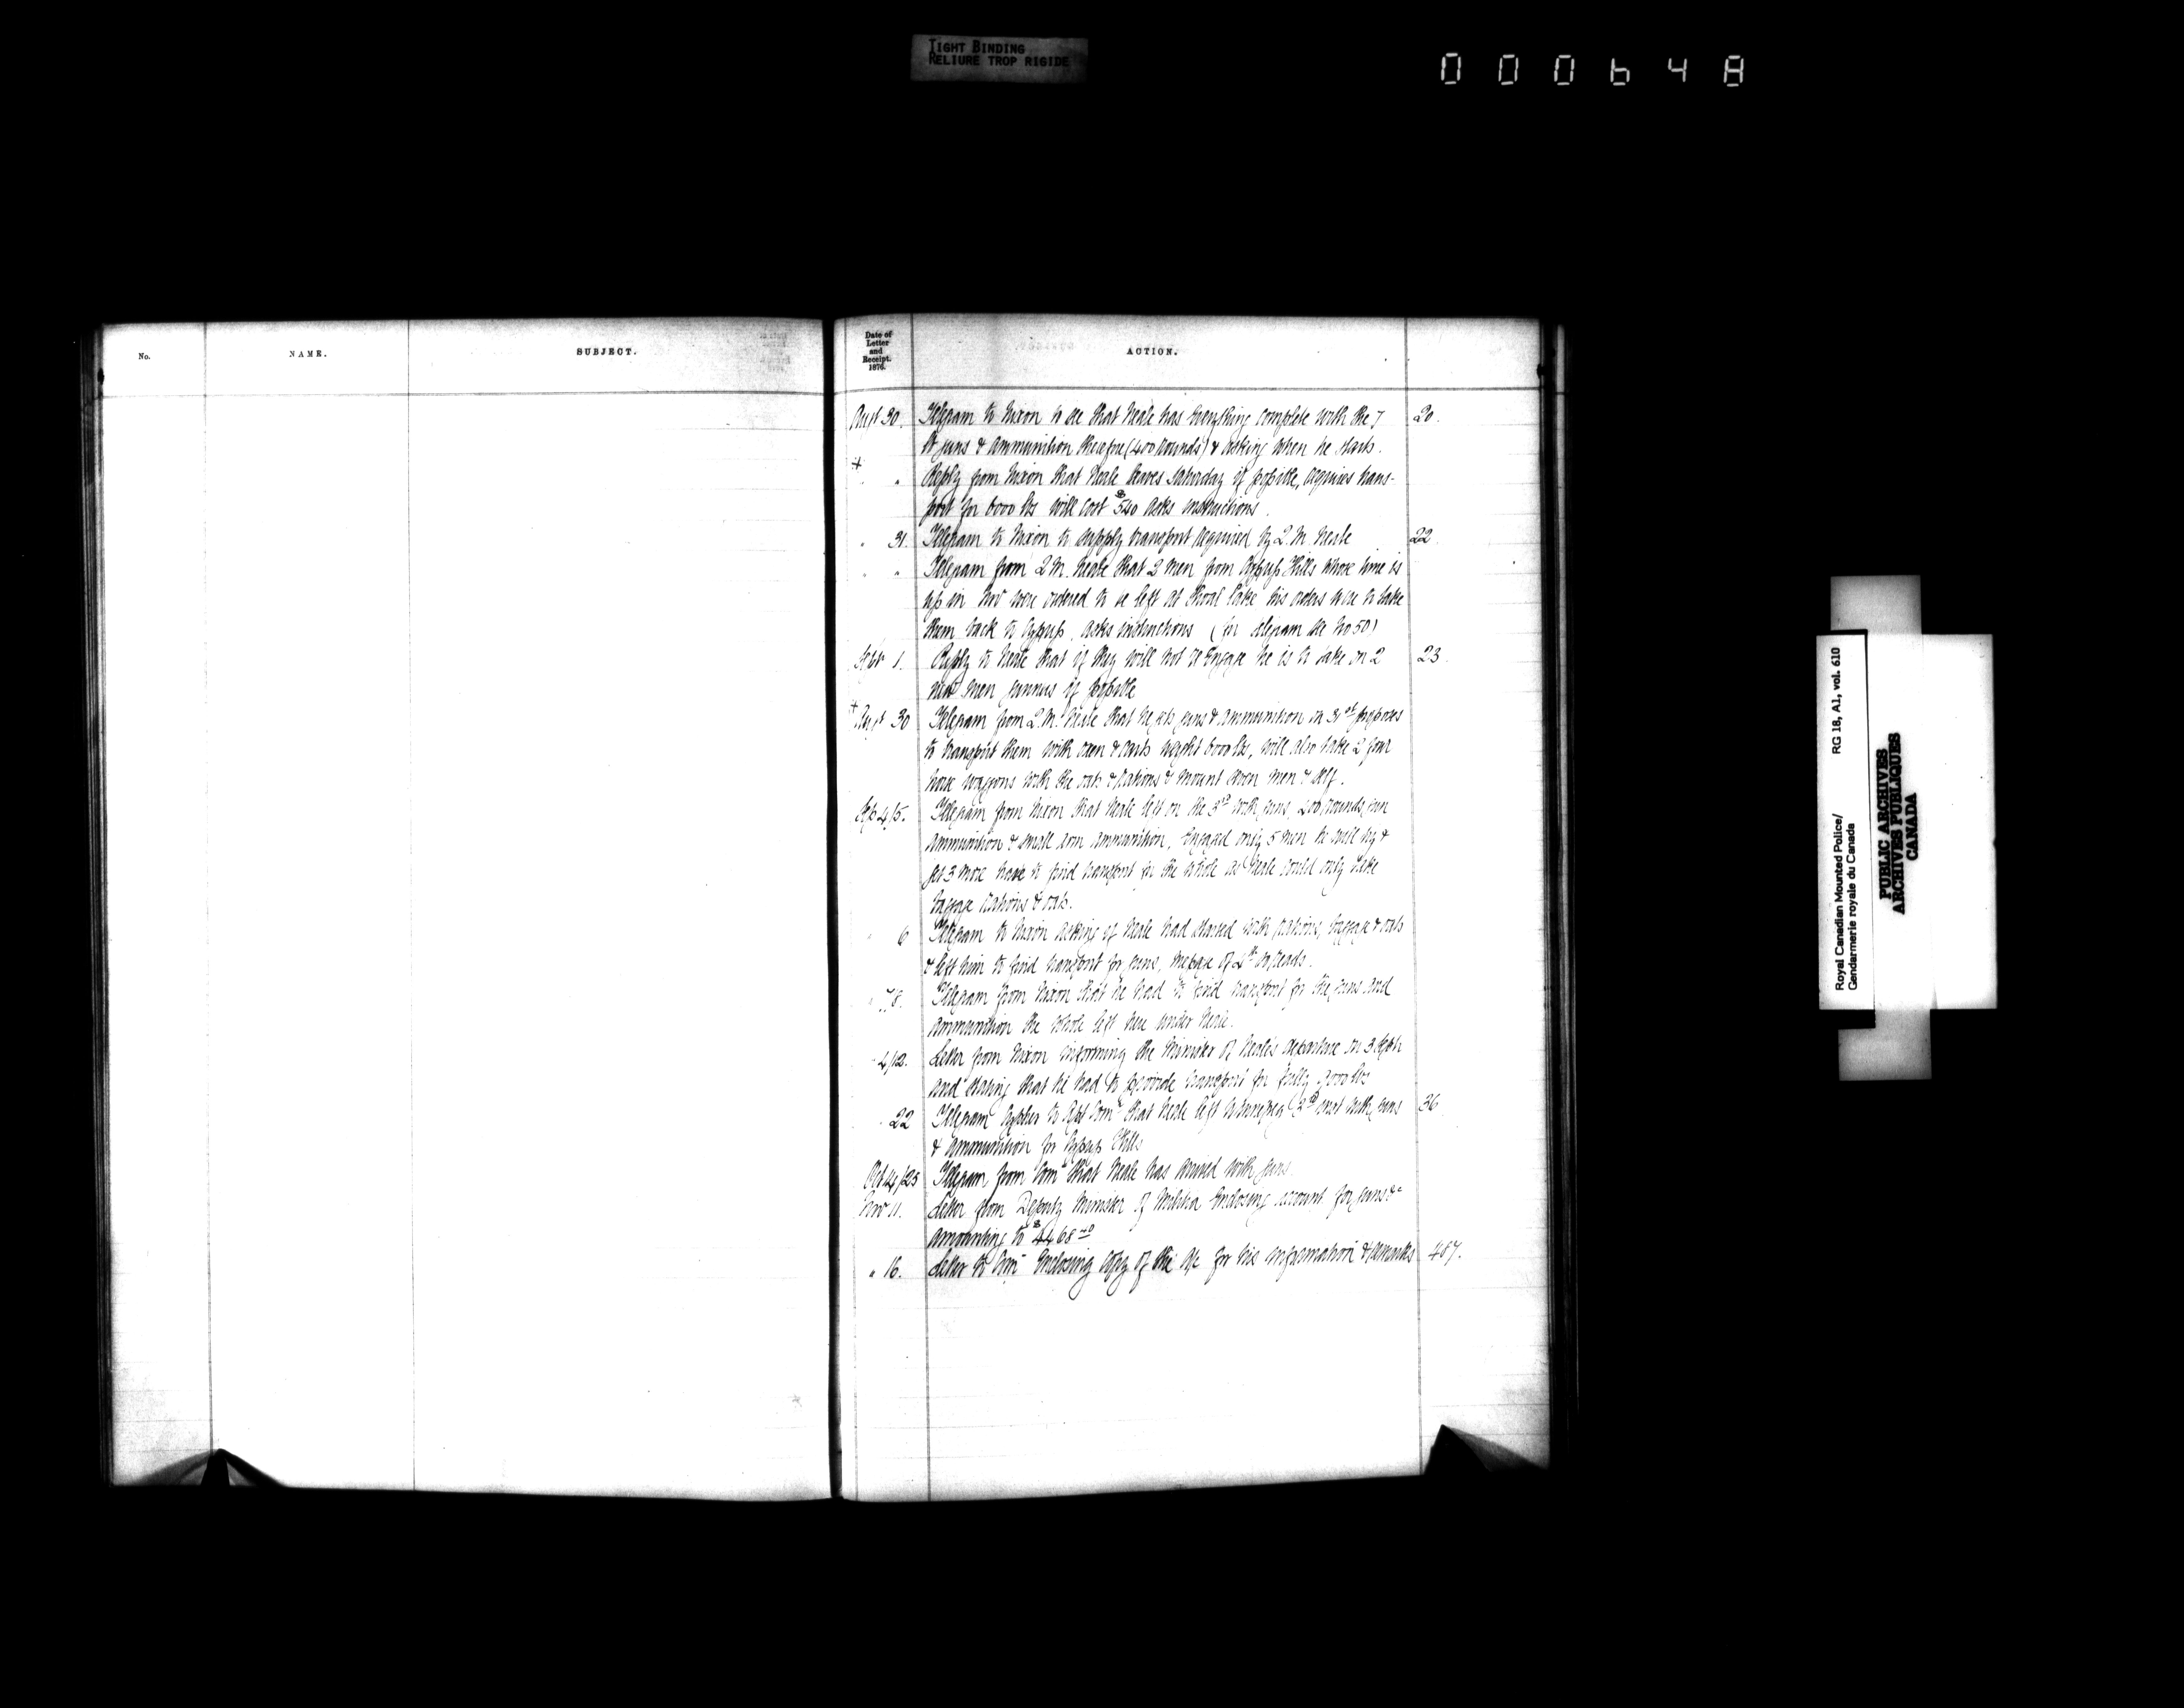 TIGHT BINDING
RELIURE TROP RIGIDE
000648
No.
NAME.
SUBJECT.
Date of
Letter
and
Receipt.
1876.
ACTION.
Augt 30. Telegram to Nixon to see that Neale has everything complete with the 7 20.
Pr guns & ammunition therefore (400 rounds) & asking when he starts.
+ " Reply from Nixon that Neale leaves Saturday if possible, requires trans-
port for 6000 lbs will cost $540 asks instructions.
" 31. Telegram to Nixon to supply transport required by Q.M. Neale 22
" " Telegram from Q.M. Neale that 2 men from Cypress Hills whose time is
up in Nov were ordered to be left at Shoal Lake his orders were to take
them back to Cypress, asks instructions (for telegram see No 50)
Septr 1. Reply to Neale that if they will not re engage he is to take on 2 23.
new men gunners if possible
+ Augt 30 Telegram from Q.M. Neale that he gets guns & ammunition on 31st proposes
to transport them with oxen & carts weight 6000 lbs, will also take 2 four
horse waggons with the oats & rations & mount seven men & self.
Sep 4/5. Telegram from Nixon that Neale left on the 3rd with guns, 400 rounds gun
ammunition & small arm ammunition, Engaged only 5 men he will try &
get 3 more have to find transport for the whole as Neale could only take
baggage rations & oats.
" 6 Telegram to Nixon asking if Neale had started with rations, baggage & oats
& left him to find transport for guns, message of 4th so reads.
" 7/8. Telegram from Nixon that he had to find transport for the guns and
ammunition the whole left here under Neale.
" 4/12. Letter from Nixon informing the Minister of Neale's departure on 3 Septr
and stating that he had to provide transport for fully 7000 lbs
" 22 Telegram Cypher to Asst Comr that Neale left Winnipeg 3rd inst with guns 36
& ammunition for Cypress Hills
Oct 14/25 Telegram from Comr that Neale has arrived with guns.
Nov 11. Letter from Deputy Minister of Militia Enclosing account for guns &c
amounting to $4468
" 16. Letter to Comr Enclosing copy of the a/c for his information & remarks 487.
Royal Canadian Mounted Police/
Gendarmerie royale du Canada
RG 18, A1, vol. 610
PUBLIC ARCHIVES
ARCHIVES PUBLIQUES
CANADA